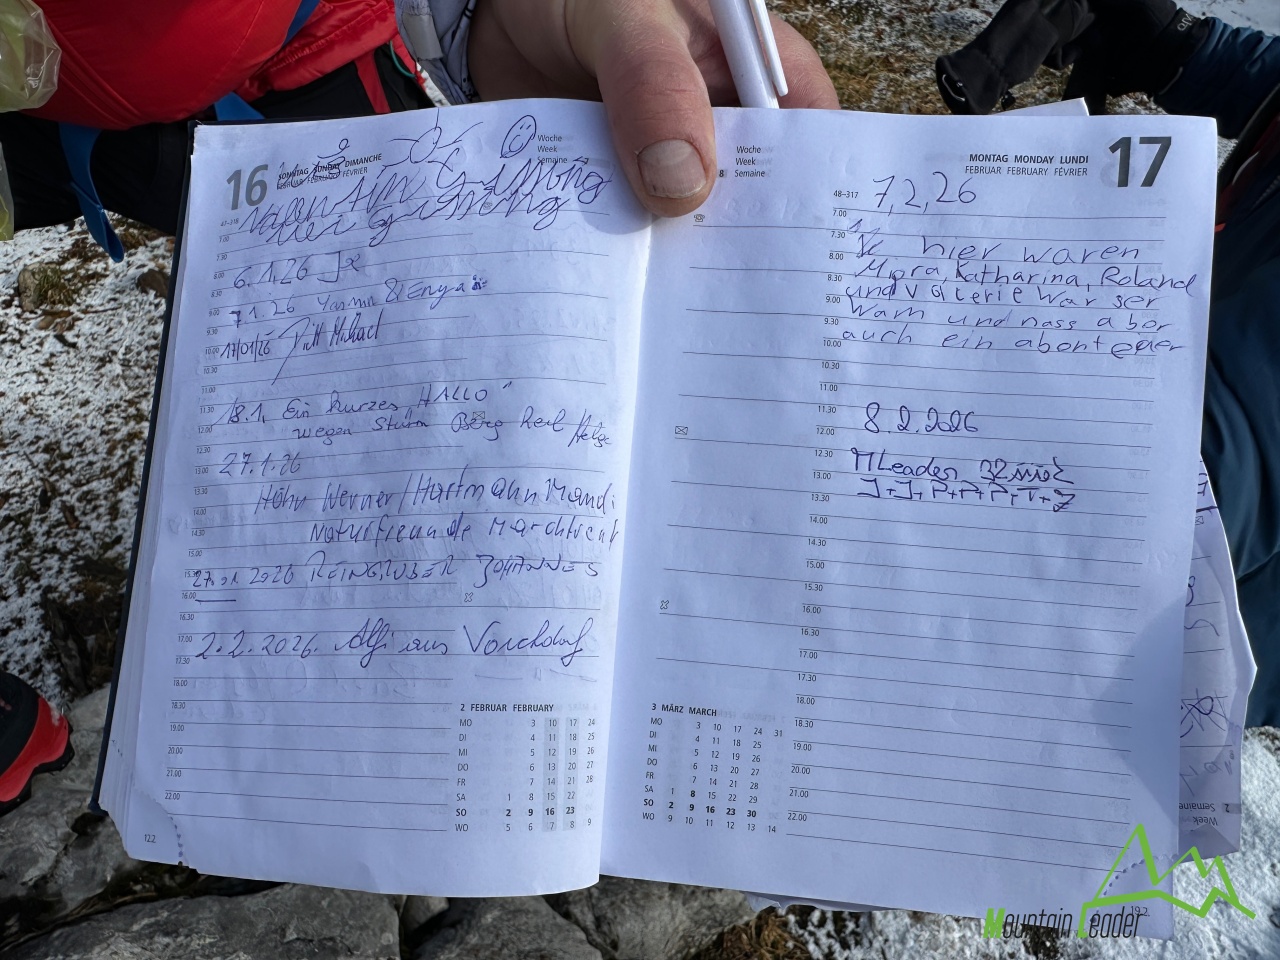 16
SONNTAG SUNDAY DIMANCHE
FEBRUAR FEBRUARY FÉVRIER
Woche
Week
Semaine
47-318
7.00
7.30
8.00
8.30
9.00
9.30
10.00
10.30
11.00
11.30
12.00
12.30
13.00
13.30
14.00
14.30
15.00
15.30
16.00
16.30
17.00
17.30
18.00
18.30
19.00
20.00
21.00
22.00
6.1.26
7.1.26 Yasmin & Enya
17/01/26 Michael
18.1. Ein kurzes "HALLO"
wegen Sturm Berg heil Helge
27.1.26
Höhr Werner / Hartmann Mandi
Naturfreunde Marchtrenk
27.01.2026 REINGRUBER JOHANNES
2.2.2026. Alfi aus Vorchdorf
2 FEBRUAR FEBRUARY
MO 3 10 17 24
DI 4 11 18 25
MI 5 12 19 26
DO 6 13 20 27
FR 7 14 21 28
SA 1 8 15 22
SO 2 9 16 23
WO 5 6 7 8 9
122.
Woche
Week
8 Semaine
MONTAG MONDAY LUNDI
FEBRUAR FEBRUARY FÉVRIER
17
48-317
7.00
7.30
8.00
8.30
9.00
9.30
10.00
10.30
11.00
11.30
12.00
12.30
13.00
13.30
14.00
14.30
15.00
15.30
16.00
16.30
17.00
17.30
18.00
18.30
19.00
20.00
21.00
22.00
7,2,26
hier waren
Katharina, Roland
und Valerie war ser
warm und nass aber
auch ein abonteuer
8.2.2026
MLeader
J+J+P+P+P+T+Z
3 MÄRZ MARCH
MO 3 10 17 24 31
DI 4 11 18 25
MI 5 12 19 26
DO 6 13 20 27
FR 7 14 21 28
SA 1 8 15 22 29
SO 2 9 16 23 30
WO 9 10 11 12 13 14
2
Week
Semaine
Mountain Leader